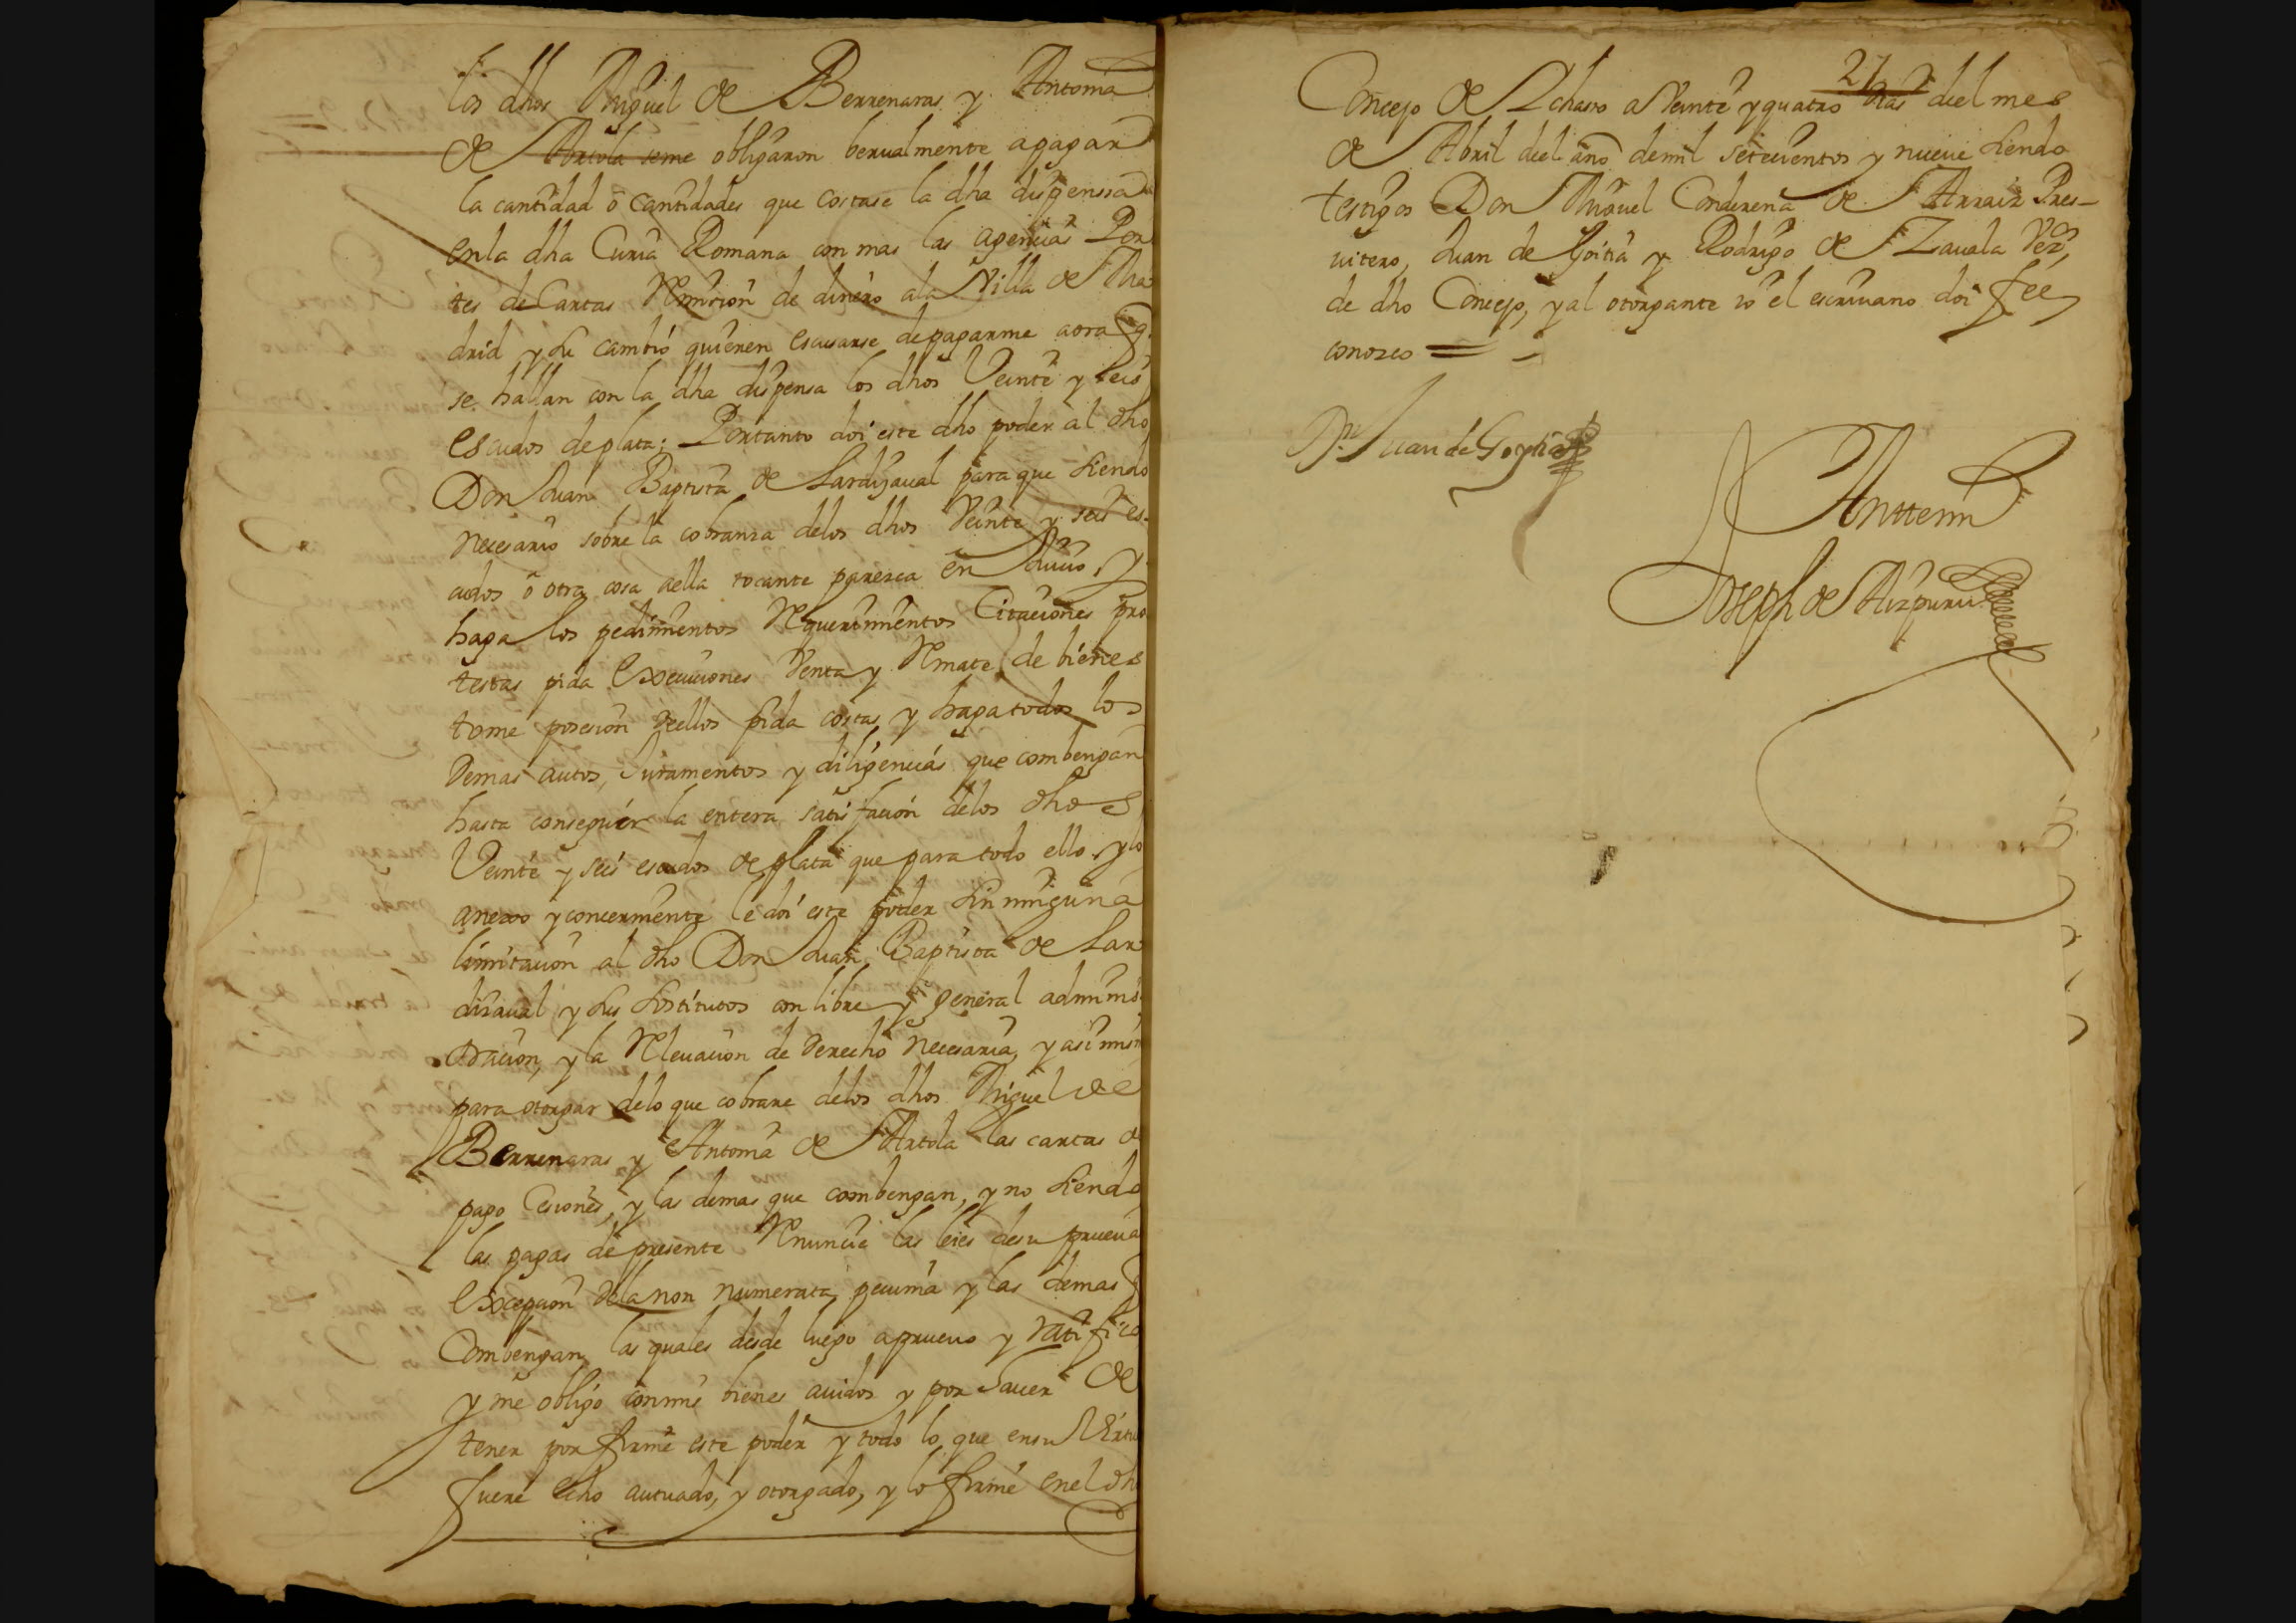 los dhos Miguel de Berrenaras y Antonia
de Artola se me obligaron berualmente a pagar
la cantidad ó cantidades que costase la dha dispensia
en la dha Curia Romana con mas las agencias Por
tes de Cartas Remision de dinero a la Villa de Ma
drid y su cambio quieren escusarse de pagarme aora q.
se hallan con la dha dispensa los dhos Veinte y seis
escudos de plata; Portanto doi este dho poder al dho
Don Juan Baptista de Lardizaual para que siendo
necesario sobre la cobranza de los dhos Veinte y seis es-
cudos ó otra cosa a ella tocante paresca en Juicio, y
haga los pedimentos Requerimentos Citaciones pro
testas pida Execuciones Venta y Remate de bienes
tome posesion de ellos pida costas y haga todos los
demas autos, Juramentos y diligencias que combengan
hasta conseguir la entera satisfacion de los dhos
Veinte y seis escudos de plata que para todo ello y lo
anexo y concerniente le doi este poder sin ninguna
limitacion al dho Don Juan Baptista de Lar
dizaual y sus sostitutos con libre y general adminis
tracion, y la Releuacion de derecho necesaria, y asi mis
para otorgar de lo que cobrare de los dhos Miguel de
Berrenaras y Antonia de Artola las cartas d
pago Cesiones, y las demas que combengan, y no siendo
las pagas de presente Renuncie las leies de su prueua
excepcion de la non numerata pecunia y las demas q
Combengan, las quales desde luego aprueuo y ratifico
y me obligo con mis bienes auidos y por hauer de
tener por firme este poder y todo lo que en su Virtu
fuere echo autuado, y otorgado, y lo firmé en el dho
27
Concejo de Lchaso a Veinte y quatro dias del mes
de Abril del año de mil setecientos y nueue siendo
testigos Don Miguel Conderena de Arraiz Pres-
uitero, Juan de Goitia y Rodrigo de Zauala Vez.os
de dho Concejo, y al otorgante io el escriuano doi fee
conozco =
Dn Juan de Goytia
Anttemi
Joseph de Aizpuru